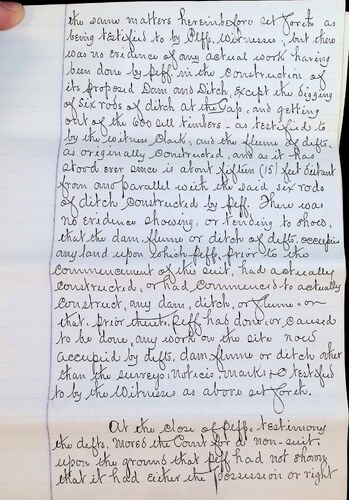 the same matters hereinbefore set forth as
being testified to by Plff. Witnesses; but there
was no evidence of any actual work having
been done by plff in the construction of
its proposed Dam and Ditch, except the digging
of six rods of ditch at the Gap, and getting
out of the 600 sell timbers, as testified to
by the witness Clark; and the flume of defts.
as originally constructed, and as it has
stood ever since is about fifteen (15) feet distant
from and parallel with the said six rods
of ditch constructed by plff. There was
no evidence showing, or tending to show,
that the dam, flume or ditch of defts. occupies
any land upon which plff, prior to the
commencement of this suit, had actually
constructed, or had commenced to actually
construct, any dam, ditch, or flume, or
that, prior thereto, plff had done, or caused
to be done, any work on the site now
occupied by defts, dam, flume or ditch other
than the surveys, notices, marks &c testified
to by the Witnesses as above set forth.
At the close of plff. testimony
the defts. moved the Court for a non-suit,
upon the ground that plff had not shown
that it had either the possession or right